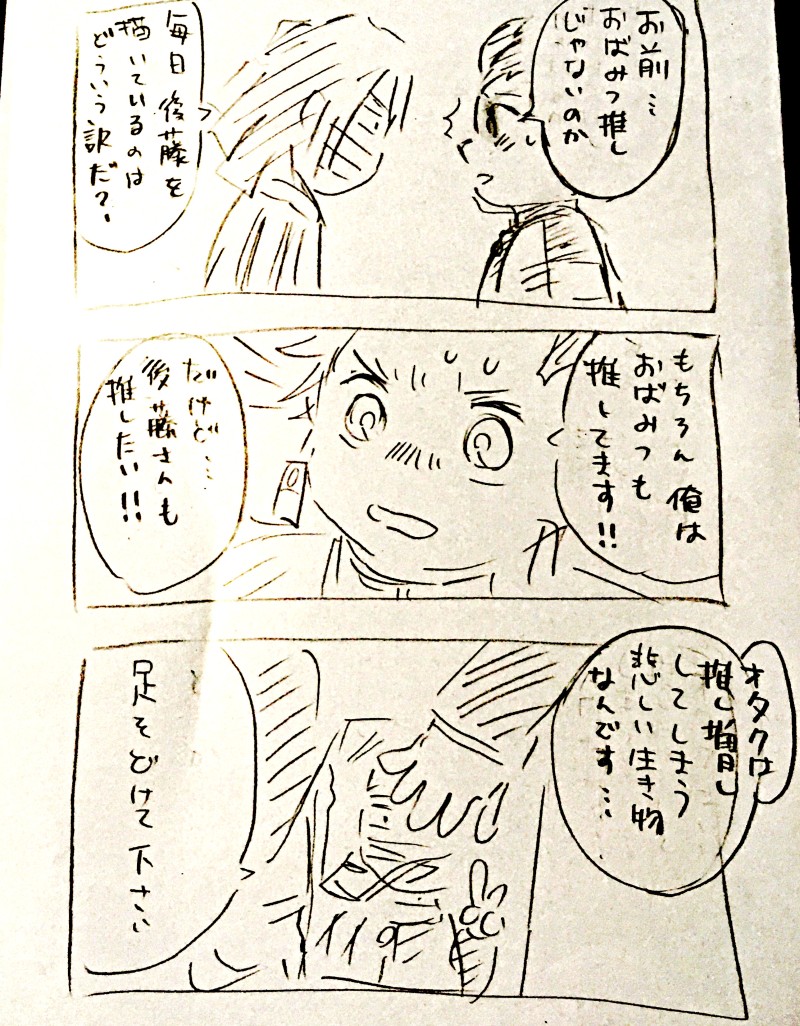 お前…
おばみつ推し
じゃないのか
毎日後藤を
描いているのは
どういう訳だ?
もちろん俺は
おばみつも
推してます!!
だけど…
後藤さんも
推したい!!
オタクは
推し増し
してしまう
悲しい生き物
なんです…
足をどけて下さい